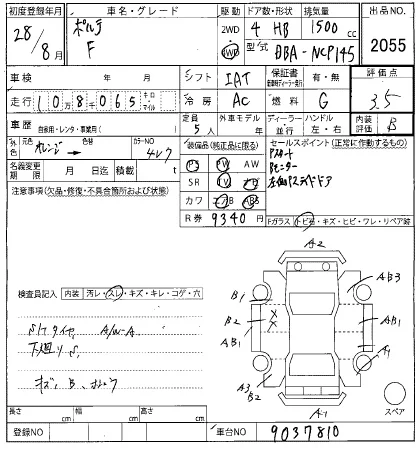 初度登録年月 車名・グレード 駆動 ドア数・形状 排気量 出品NO.
28/8月 ポルテ F 2WD 4WD 4 HB 1500 cc 2055
型式 DBA-NCP145
車検 年 月 シフト IAT 保証書 有・無 評価点
走行 108065 キロ マイル 冷房 AC 燃料 G 3.5
車歴 自家用・レンタ・事業用( ) 定員 5人 外車モデル 年 ディーラー 並行 ハンドル 左・右 内装 B
外色 元色 オレンジ 色替 カラーNO 4R7 装備品(純正品に限る) セールスポイント(正常に作動するもの)
名義変更期限 月 日迄 積載 t PS PW AW
Pスタート
Bモニター
左側Pスライドドア
注意事項(欠品・修復・不具合箇所および状態)
SR TV ナビ
カワ エアB ABS
R券 9340円
Fガラス トビ石・キズ・ヒビ・ワレ・リペア跡
A2
検査員記入 内装 汚レ・スレ・キズ・キレ・コゲ・穴
AB3
B1
B2
AB1
AB1
S/Tタイヤ A/W-A
下廻りS
A3
B2
A1
A1
スペア
長さ cm 幅 cm 高さ cm
登録NO 車台NO 9037810